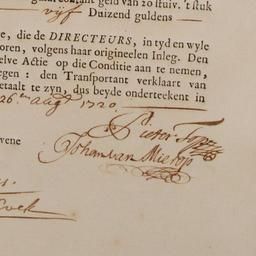 contant geld van 20 stuiv. 't stuk
vijf Duizend guldens
e, die de DIRECTEURS, in tyd en wyle
oren, volgens haar origineelen Inleg. Den
elve Actie op die Conditie aan te nemen,
egen: den Transportant verklaart van
etaalt te zyn, dus beyde onderteekent in
26en augt 1720
Pieter
Johan van Mierop
vene